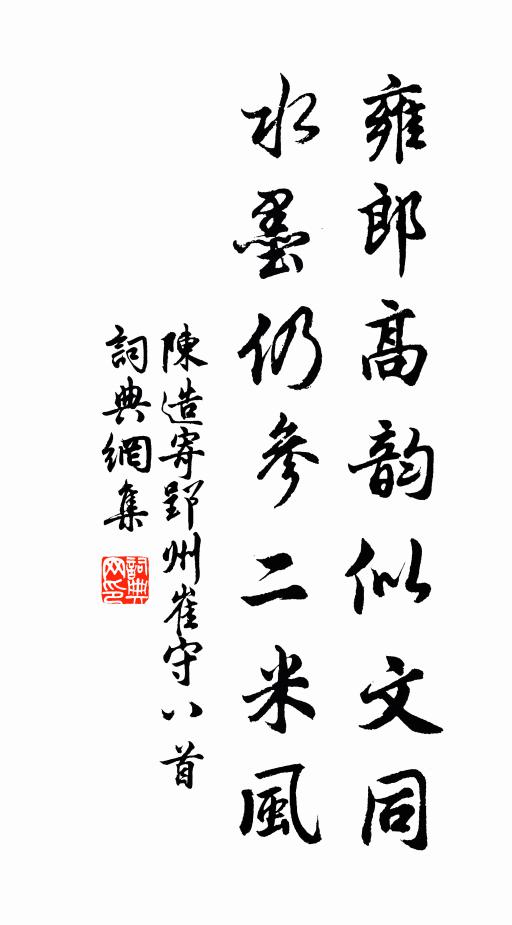 雍郎高韵似文同
水墨仍參二米風
陳造寄郢州崔守八首
詞典網集
詞典网印